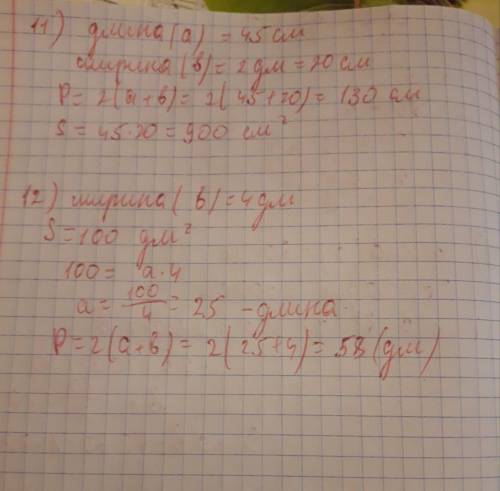 11) длина (а) = 45 см
ширина (в) = 2 дм = 20 см
P = 2(а+в) = 2(45+20) = 130 см
S = 45·20 = 900 см²
12) ширина (в) = 4 дм
S = 100 дм²
100 = а·4
а = 100/4 = 25 - длина
P = 2(а+в) = 2(25+4) = 58 (дм)